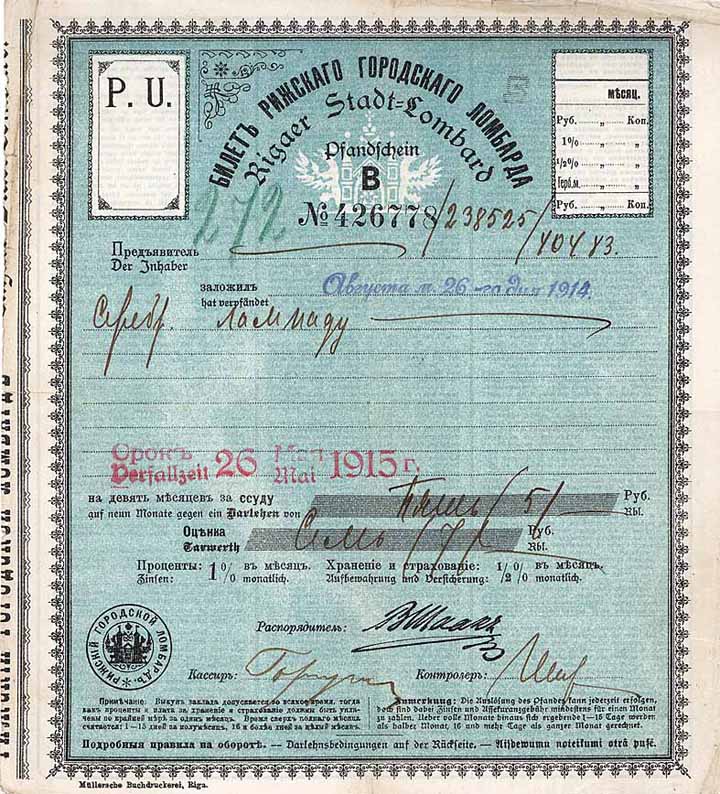 P. U.
БИЛЕТЪ РИЖСКАГО ГОРОДСКАГО ЛОМБАРДА
Rigaer Stadt-Lombard
Pfandschein
B
МѢСЯЦ.
Руб. „ „ Коп.
1% „
½% „
Герб.м. „
Руб. „ „ Коп.
272
№ 426778/238525/40483.
Предъявитель
Der Inhaber
заложилъ
hat verpfändet
Августа м. 26-го дня 1914.
Серебр. лампаду
Срокъ 26 Мая 1915 г.
Verfallzeit Mai
на девять мѣсяцевъ за ссуду Пять /5/ Руб.
auf neun Monate gegen ein Darlehen von Rbl.
Оцѣнка Семь /7/ Руб.
Taxwerth Rbl.
Проценты: 1% въ мѣсяцъ. Храненіе и страхованіе: 1/2% въ мѣсяцъ.
Zinsen: monatlich. Aufbewahrung und Versicherung: monatlich.
РИЖСКІЙ ГОРОДСКОЙ ЛОМБАРДЪ
Распорядитель:
Кассиръ:
Контролеръ:
Примѣчаніе: Выкупъ заклада допускается во всякое время, тогда
какъ проценты и плата за храненіе и страхованіе должны быть уплачены
по крайней мѣрѣ за одинъ мѣсяцъ. Время сверхъ полнаго мѣсяца
считается: 1—15 дней за полумѣсяцъ, 16 и болѣе дней за цѣлый мѣсяцъ.
Anmerkung: Die Auslösung des Pfandes kann jederzeit erfolgen,
doch sind dabei Zinsen und Assekuranzgebühr mindestens für einen Monat
zu zahlen. Ueber volle Monate hinaus sich ergebende 1—15 Tage werden
als halber Monat, 16 und mehr Tage als ganzer Monat gerechnet.
Подробныя правила на оборотѣ. — Darlehnsbedingungen auf der Rückseite. — Aisdewumu noteikumi otrâ pusê.
Müllersche Buchdruckerei, Riga.